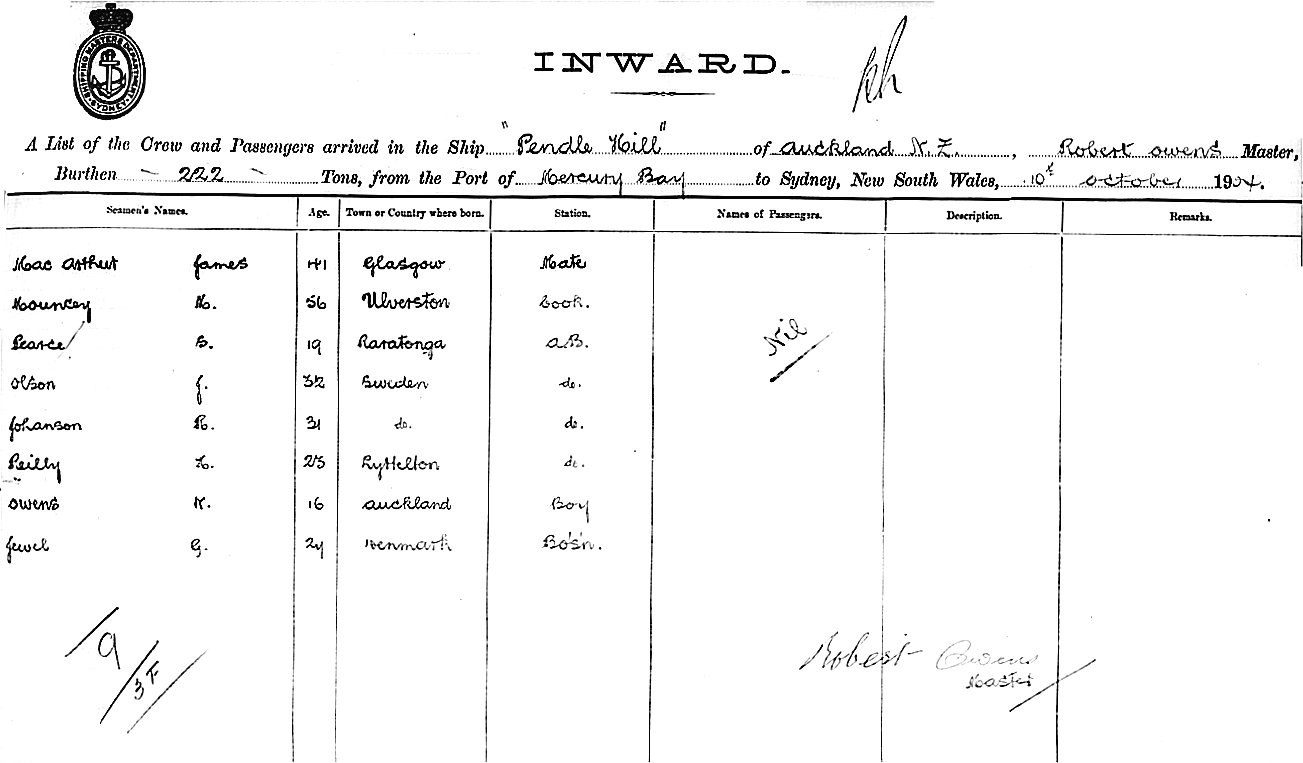 SHIPPING MASTERS DEPARTMENT SYDNEY
INWARD.
A List of the Crew and Passengers arrived in the Ship "Pendle Hill" of Auckland N.Z., Robert Owens Master,
Burthen - 222 - Tons, from the Port of Mercury Bay to Sydney, New South Wales, 10t October 1904.
Seamen's Names. Age. Town or Country where born. Station. Names of Passengers. Description. Remarks.
Mac Arthur James 41 Glasgow Mate
Mouncey 56 Ulverston Cook.
Pearce B. 19 Raratonga A.B.
Nil
Olson J. 32 Sweden do.
Johanson R. 31 do. do.
Reilly 25 Lyttelton do.
Owens 16 Auckland Boy
Jewel G. Denmark Bo's'n.
9
Robert Owens
Master